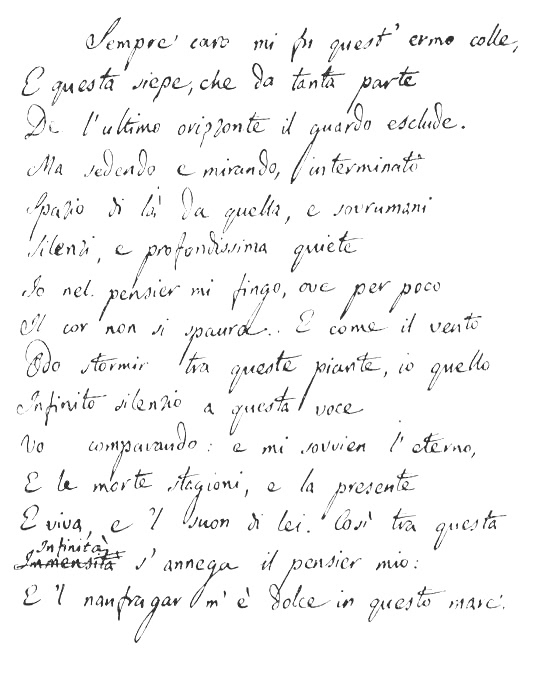 Sempre caro mi fu quest' ermo colle,
E questa siepe, che da tanta parte
De l'ultimo orizzonte il guardo esclude.
Ma sedendo e mirando, interminato
Spazio di là da quella, e sovrumani
Silenzi, e profondissima quiete
Io nel pensier mi fingo, ove per poco
Il cor non si spaura. E come il vento
Odo stormir tra queste piante, io quello
Infinito silenzio a questa voce
Vo comparando: e mi sovvien l'eterno,
E le morte stagioni, e la presente
E viva, e 'l suon di lei. Così tra questa
Infinità
Immensità s'annega il pensier mio:
E 'l naufragar m'è dolce in questo mare.